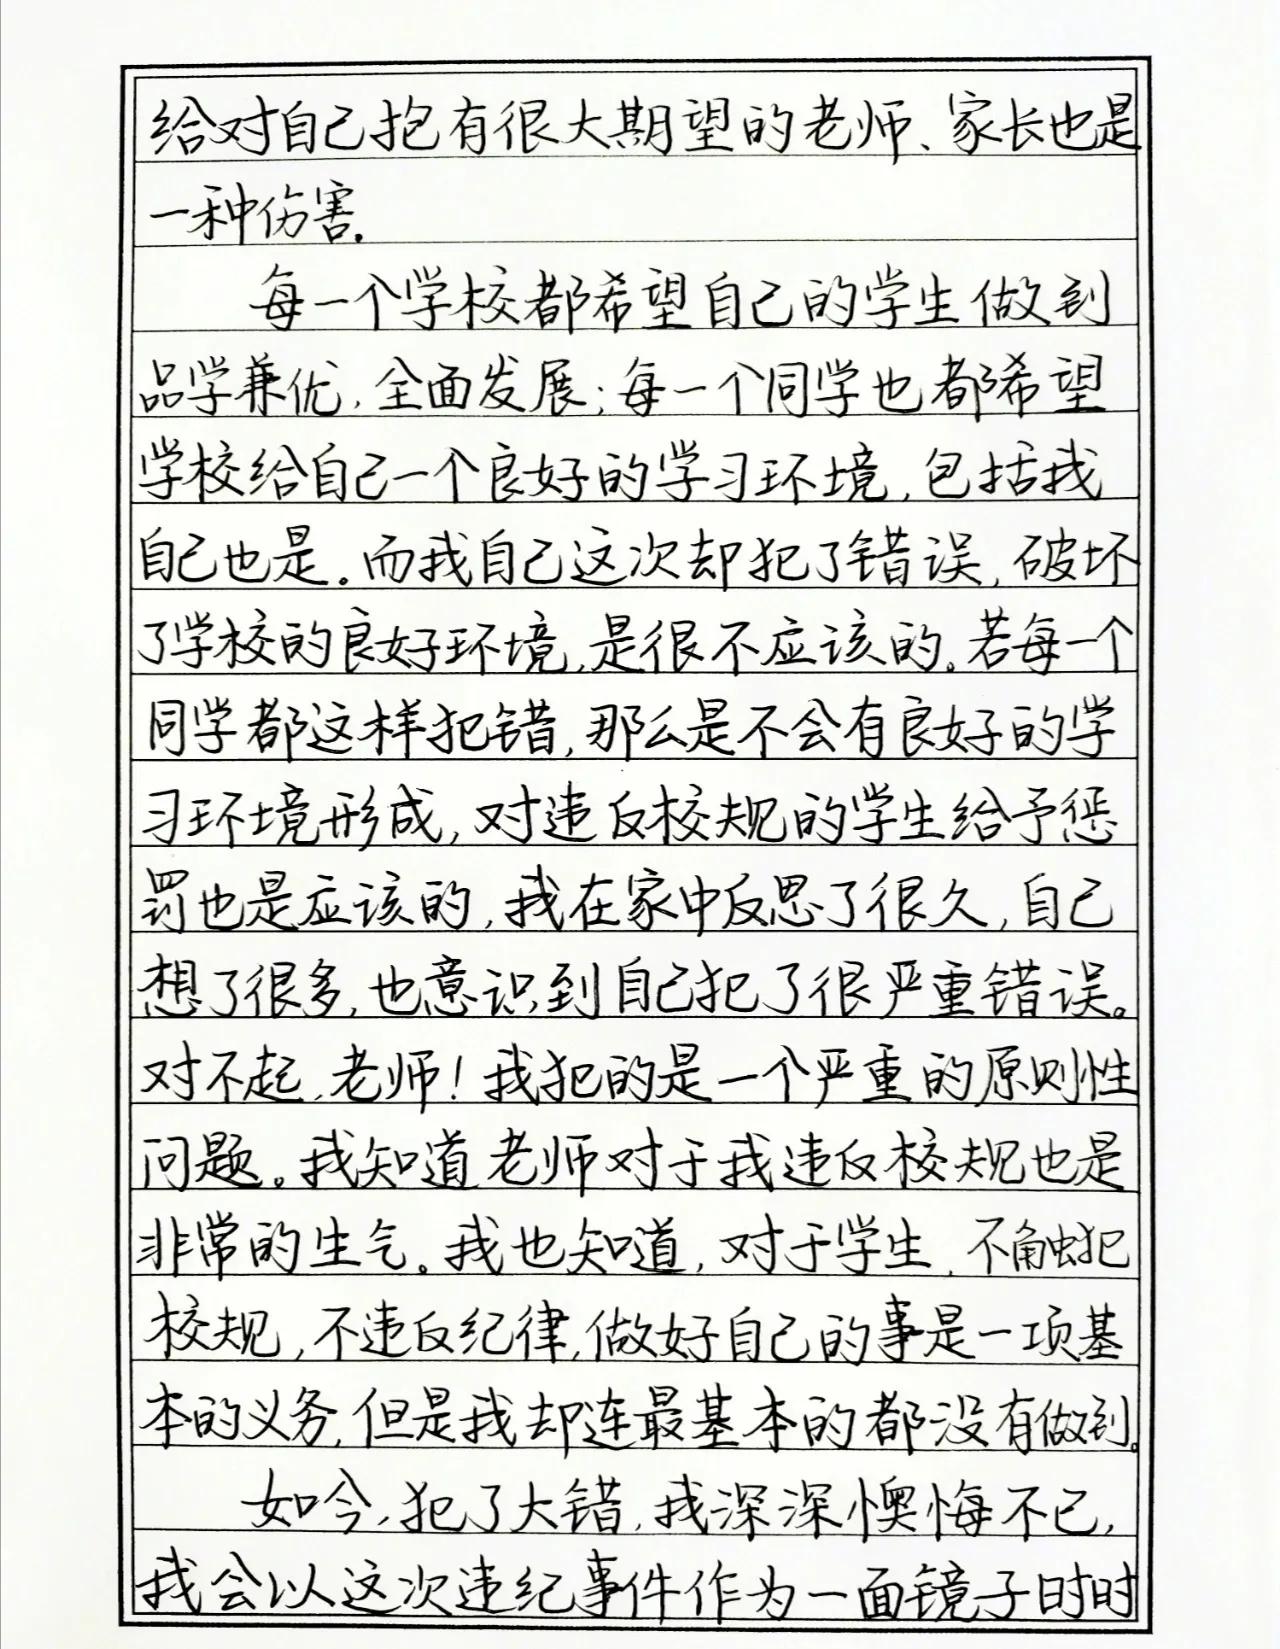 给对自己抱有很大期望的老师、家长也是
一种伤害.
每一个学校都希望自己的学生做到
品学兼优,全面发展;每一个同学也都希望
学校给自己一个良好的学习环境,包括我
自己也是。而我自己这次却犯了错误,破坏
了学校的良好环境,是很不应该的。若每一个
同学都这样犯错,那么是不会有良好的学
习环境形成,对违反校规的学生给予惩
罚也是应该的,我在家中反思了很久,自己
想了很多,也意识到自己犯了很严重错误。
对不起,老师!我犯的是一个严重的原则性
问题。我知道,老师对于我违反校规也是
非常的生气。我也知道,对于学生,不触犯
校规,不违反纪律,做好自己的事是一项基
本的义务,但是我却连最基本的都没有做到。
如今,犯了大错,我深深懊悔不已,
我会以这次违纪事件作为一面镜子时时